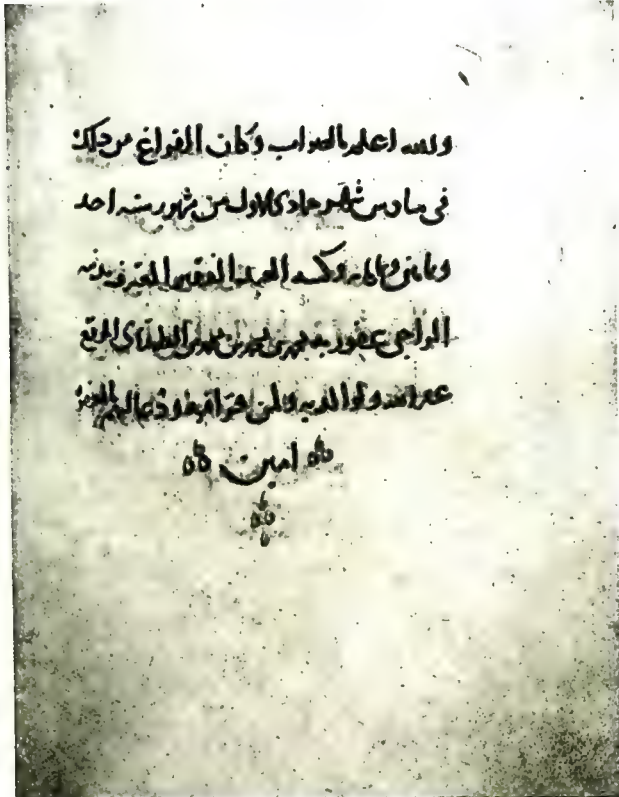 والله اعلم بالصواب وكان الفراغ من ذلك
فى سادس شهر جمادى الاول من شهور سنه احد
وثمانى وثمانمايه وكتبه العبد الفقير المعترف بذنبه
الراجى عفو ربه محمد بن محمد بن محمد
غفر الله له ولوالديه ولمن قرا فيه ودعا لهم بالمغفرة
امين